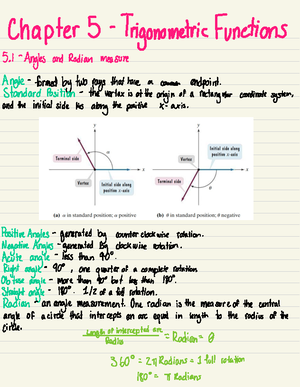 Chapter 5 - Trigonometric Functions
5.1 - Angles and Radian measure
Angle - formed by two rays that have a common endpoint.
Standard Position - the vertex is at the origin of a rectangular coordinate system,
and the initial side lies along the positive x-axis.
y
y
Terminal side
α
Vertex
Initial side along
positive x-axis
x
Initial side along
positive x-axis
Vertex
x
Terminal side
θ
(a) α in standard position; α positive
(b) θ in standard position; θ negative
Positive Angles - generated by counterclockwise rotation.
Negative Angles - generated by clockwise rotation.
Acute angle - less than 90°.
Right angle - 90°, one quarter of a complete rotation
Obtuse angle - more than 90° but less than 180°.
Straight angle - 180°. 1/2 of a full rotation.
Radian - an angle measurement. One radian is the measure of the central
angle of a circle that intercepts an arc equal in length to the radius of the
circle.
Length of intercepted arc
Radius
= Radian = θ
360° = 2π Radians = 1 full rotation
180° = π Radians